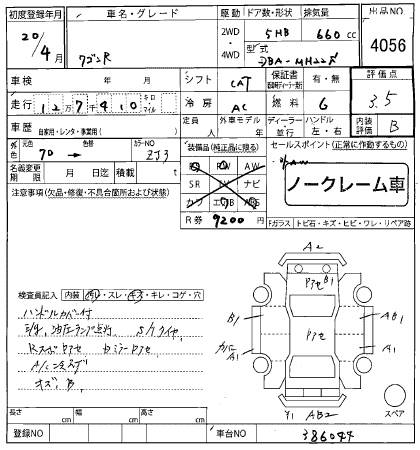 初度登録年月 車名・グレード 駆動 ドア数・形状 排気量 出品NO
20/4月 ワゴンR 2WD・4WD 5HB 660cc 4056
型式 DBA-MH22S
車検 年 月 シフト CAT 保証書 有・無 評価点
走行 12万7千410 キロ・マイル 冷房 AC 燃料 G 3.5
車歴 自家用・レンタ・事業用( ) 定員 人 外車モデル 年 ディーラー・並行 ハンドル 左・右 内装 B
外色 元色 70 → 色替 カラーNO ZJ3 装備品(純正品に限る) セールスポイント(正常に作動するもの)
名義変更期限 月 日 積載 t
AW
SR TV ナビ
カワ エアB ABS
R券 9200円
ノークレーム車
注意事項(欠品・修復・不具合箇所および状態)
Fガラス トビ石・キズ・ヒビ・ワレ・リペア跡
A2
B1
アセ
B1 アセ AB1
A1 A1
Y1 AB2
スペア
検査員記入 内装 汚れ・スレ・キズ・キレ・コゲ・穴
ハンドルカバー付
油圧ランプ点灯 S/タイヤ
Rスポアセ ドミラーアセ
キズ、B
長さ cm 幅 cm 高さ cm
登録NO 車台NO 386044